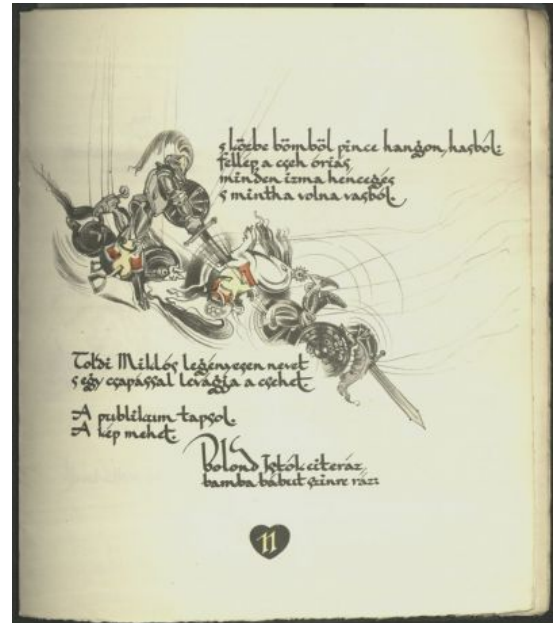 s közbe bömböl pince hangon, hasból:
fellép a cseh óriás,
minden izma hencegés
s mintha volna vasból.
Toldi Miklós legényesen nevet
s egy csapással levágja a csehet.
A publikum tapsol.
A kép mehet.
Bolond Istók citeráz,
bamba bábut szinre ráz:
11